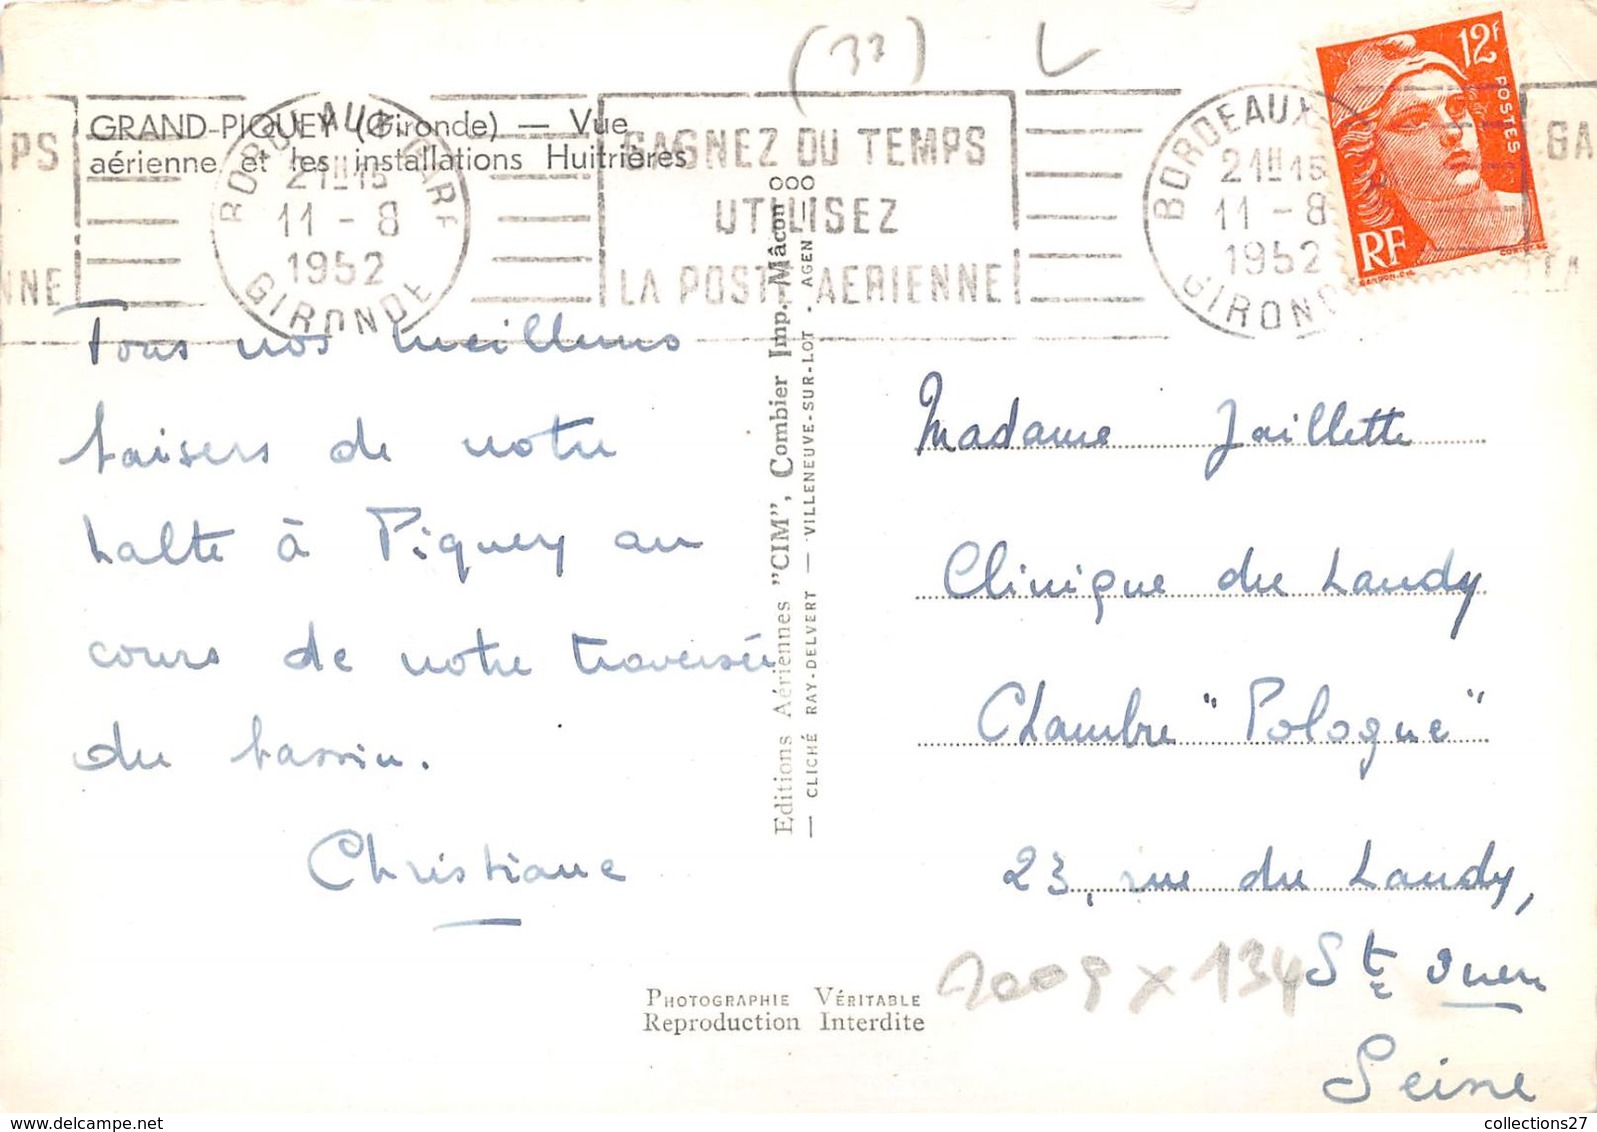 (33)
GRAND-PIQUEY (Gironde) — Vue
aérienne et les installations Huitrières
PS
NNE
BORDEAUX GARE
21H15
11 - 8
1952
GIRONDE
GAGNEZ DU TEMPS
UTILISEZ
LA POSTE AERIENNE
BORDEAUX
21H15
11 - 8
1952
GIRONDE
GA
LA
12F
POSTES
RF
Tous nos meilleurs
baisers de notre
halte à Piquey au
cours de notre traversée
du bassin.
Christiane
Editions Aériennes "CIM", Combier Imp. Mâcon ooo
— CLICHÉ RAY-DELVERT — VILLENEUVE-SUR-LOT - AGEN
Madame Jaillette
Clinique du Landy
Chambre "Pologne"
23, rue du Landy,
Ste Ouen
Seine
PHOTOGRAPHIE VÉRITABLE
Reproduction Interdite
2009 x 134
collections27